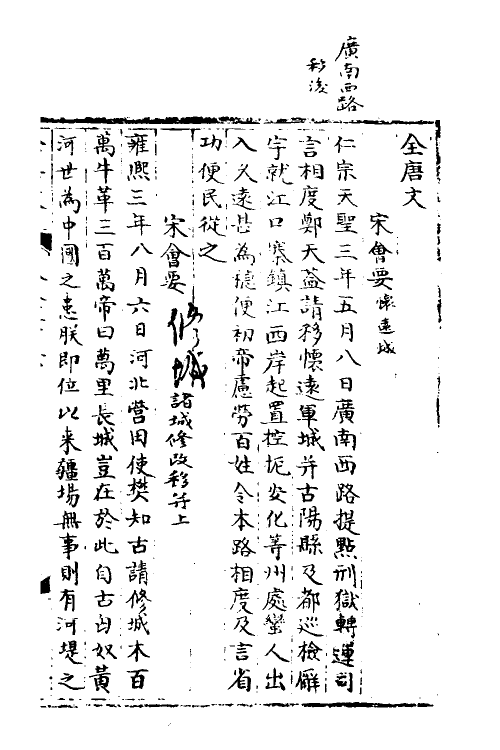 廣南西路
移後
全唐文
宋會要懷遠城
仁宗天聖三年五月八日廣南西路提點刑獄轉運司
言相度鄭天益請移懷遠軍城并古陽縣及都巡檢廨
宇就江口寨鎮江西岸起置控扼安化等州處蠻人出
入久遠甚為穩便初帝慮勞百姓令本路相度及言省
功便民從之
宋會要
修城諸城修改移并上
雍熙三年八月六日河北營田使樊知古請修城木百
萬牛革三百萬帝曰萬里長城豈在於此自古匈奴黃
河世為中國之患朕即位以來疆場無事則有河堤之